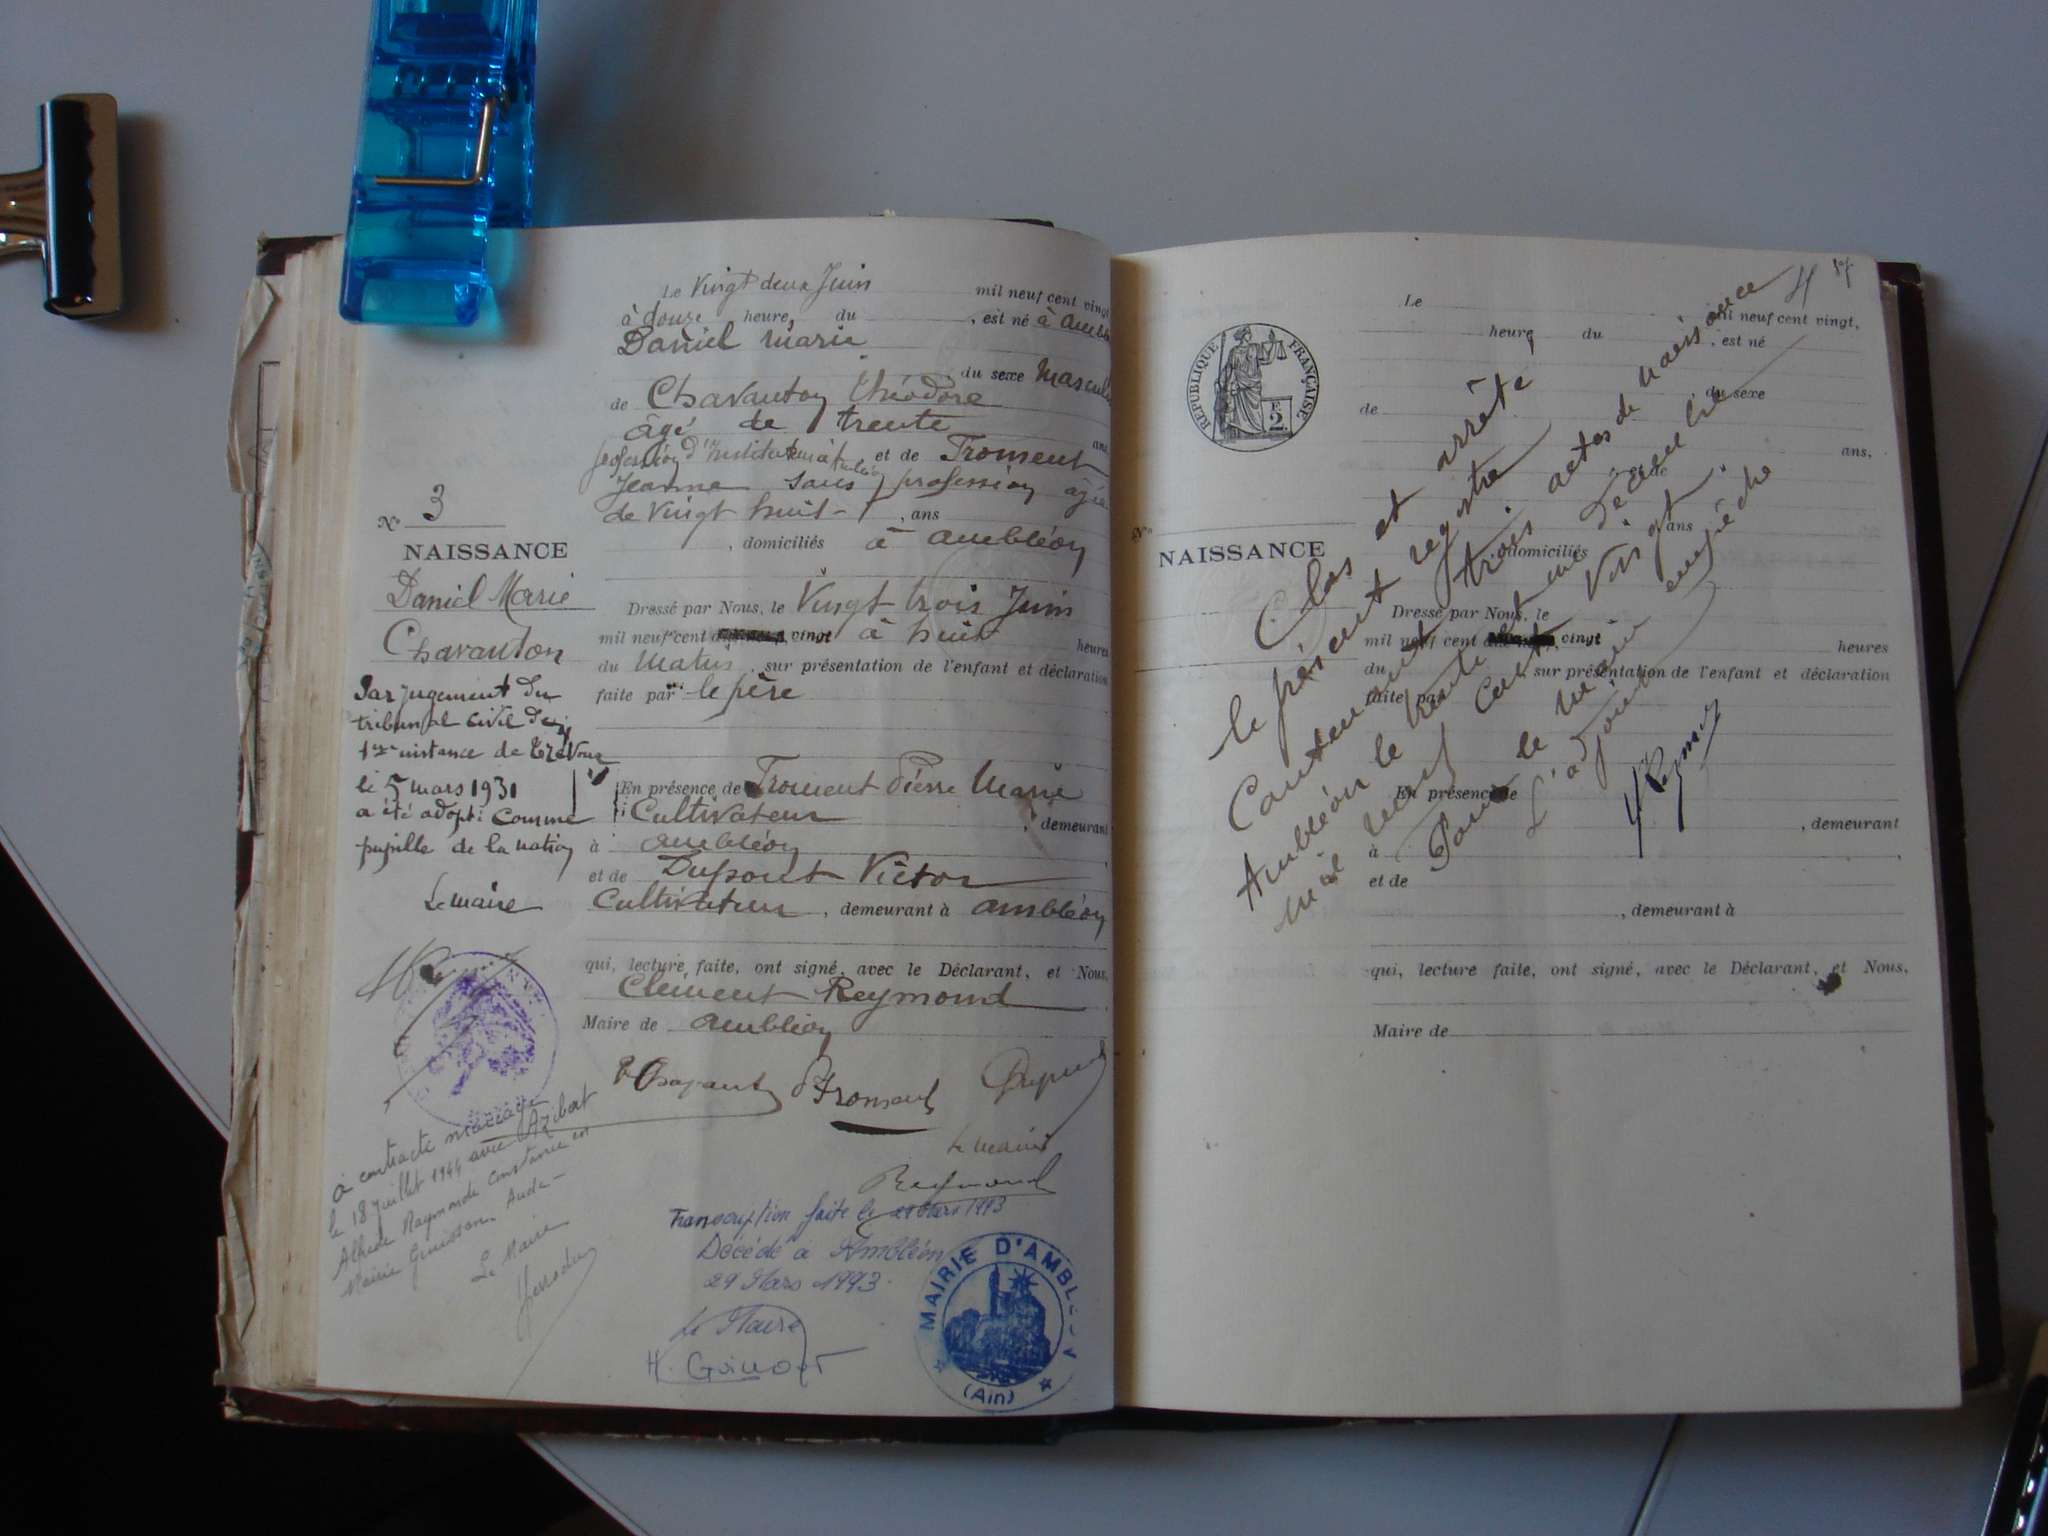 Le Vingt deux Juin mil neuf cent vingt
à douze heure, du , est né à
Daniel Marie
du sexe Mascul
de Chavanton Théodore
âgé de trente ans
profession d' et de Froment
Jeanne sans profession âgée
de Vingt huit ans
, domiciliés à Ambléon
N° 3
NAISSANCE
Daniel Marie
Chavanton
Dressé par Nous, le Vingt trois Juin
mil neuf cent vingt à huit heures
du Matin, sur présentation de l'enfant et déclaration
faite par le père
Par jugement du
tribunal civil de
1ère instance de Trévoux
le 5 mars 1931
a été adopté comme
pupille de la nation
Le maire
En présence de Froment Pierre Marie
Cultivateur , demeurant
à Ambléon
et de Dupont Victor
Cultivateur, demeurant à Ambléon
qui, lecture faite, ont signé, avec le Déclarant, et Nous,
Clément Reymond
Maire de Ambléon
Froment
Le maire
Reymond
à contracté mariage
le 18 Juillet 1944 avec Azibert
Alhese Raymonde Constance en
Mairie Aude
Le Maire
Transcription faite le 29 Mars 1993
Décédé à Ambléon
29 Mars 1993
Le Maire
MAIRIE D'AMBLÉON
(Ain)
37
RÉPUBLIQUE FRANÇAISE
2
Le mil neuf cent vingt,
heure, du , est né
du sexe
de
ans,
ans
NAISSANCE
domiciliés
Dressé par Nous, le
mil neuf cent vingt
heures
du sur présentation de l'enfant et déclaration
faite par
En présence de
, demeurant
à
et de
, demeurant à
qui, lecture faite, ont signé, avec le Déclarant, et Nous,
Maire de
Clos et arrêté
le présent registre
Contenant trois actes de naissance
Ambléon le trente et un décembre
mil neuf cent vingt.
Pour le maire empêché
L'adjoint
Reymond